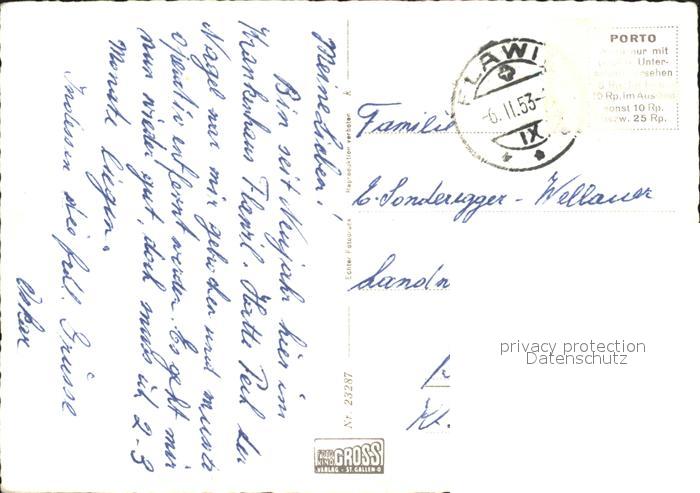 Meine Lieben!
Bin seit Neujahr hier im
Krankenhaus Flawil. Hatte Pech der
Nagel war mir gebrochen und musste
operativ entfernt werden. Es geht mir
nun wieder gut, doch muss ich 2-3
Monate liegen.
Indessen die frdl. Grüsse
Oskar
Echter Fotodruck
Reproduktion verboten
Nr. 23287
GROSS
VERLAG - ST. GALLEN O
FLAWIL
-6.II.53-
IX
PORTO
nur mit
Unter-
sehen
10 Rp. im Aus
sonst 10 Rp.
bzw. 25 Rp.
Familie
E. Sonderegger-Wellauer
Landw
Kt.
privacy protection
Datenschutz